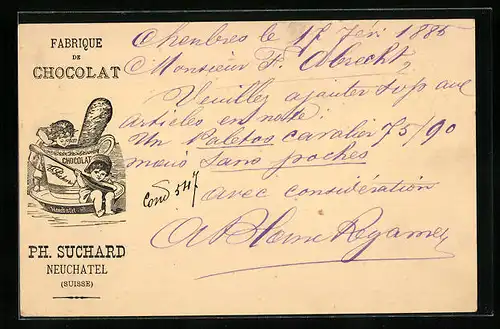 FABRIQUE
DE
CHOCOLAT
CHOCOLAT
PH. SUCHARD
NEUCHATEL
(SUISSE)
le 17 Févr 1885
Monsieur F. Abrecht
Veuillez ajouter svp aux
articles en note:
Un Paletos cavalier 75/90
mais sans poches
Com 547
avec considération